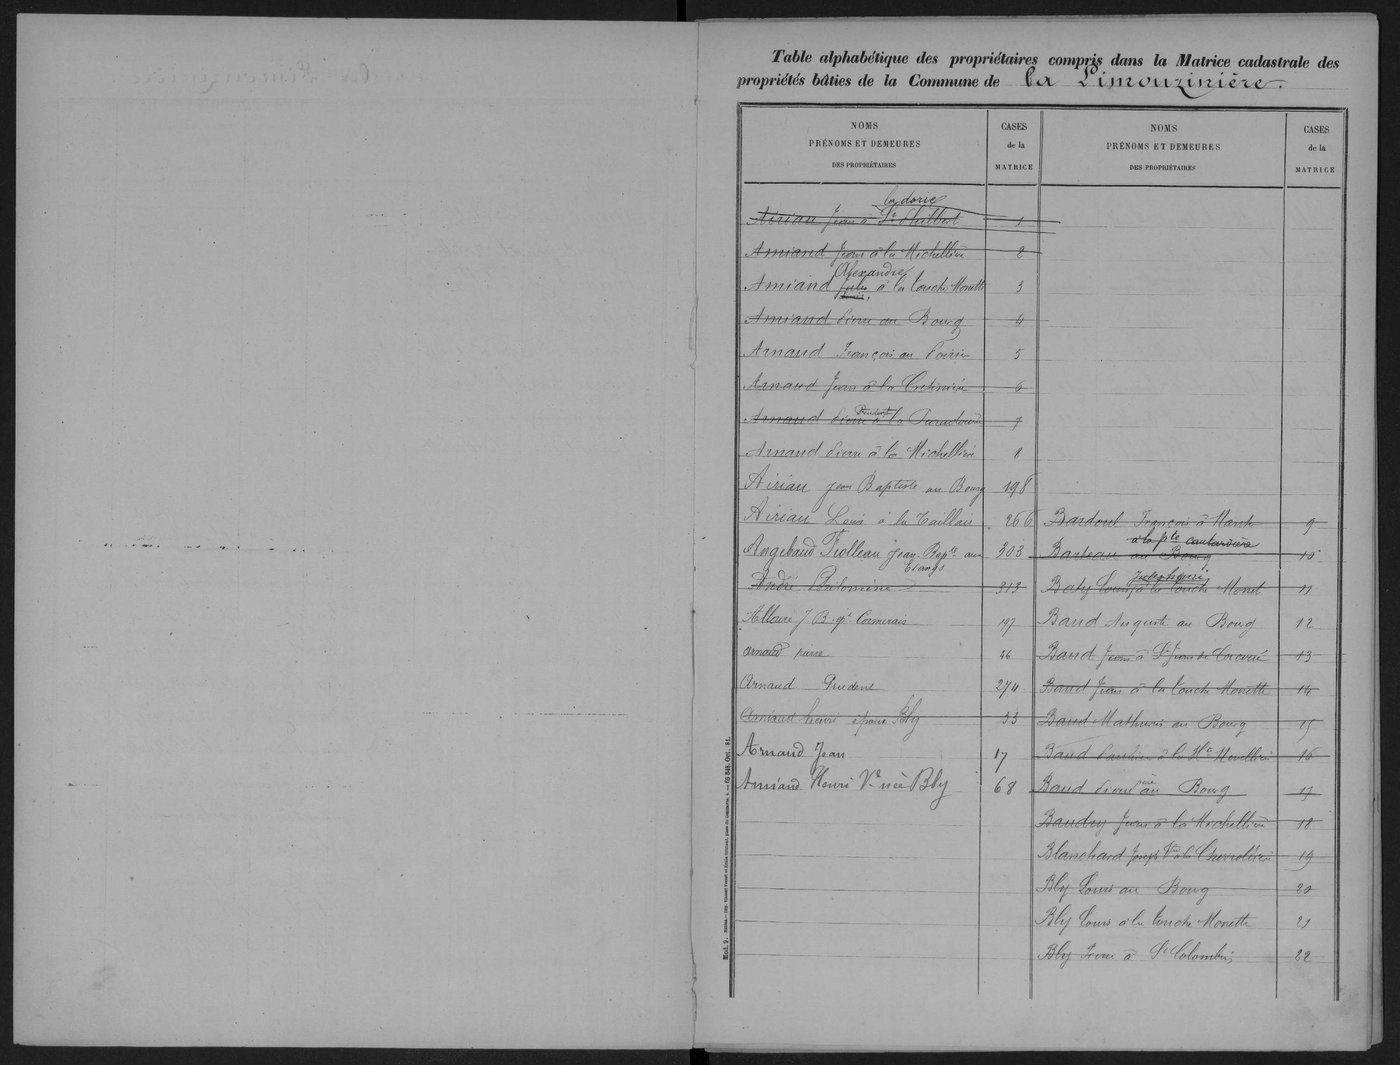 Table alphabétique des propriétaires compris dans la Matrice cadastrale des
propriétés bâties de la Commune de la Limouzinière.
NOMS
PRÉNOMS ET DEMEURES
DES PROPRIÉTAIRES
CASES
de la
MATRICE
la dorie
Airiau Jean à St Philbert 1
Amiand Jean à la Michellière 2
Alexandre
Amiand Jules à la touche Monette 3
Amiand Pierre au Bourg 4
Arnaud François au 5
Arnaud Jean à la 6
Prudent
Arnaud Pierre à la 7
Arnaud Pierre à la Michellière 8
Airiau Jean Baptiste au Bourg 198
Airiau Louis à la Taillais 266
Angebaud Trolleau Jean Bapte aux 303
Etangs
André Philomène 313
Allaire J. B. Cormerais 197
Arnaud pierre 46
Arnaud Prudent 274
Amiaud henri époux Bly 33
Arnaud Jean 17
Amiaud Henri Ve née Bly 68
NOMS
PRÉNOMS ET DEMEURES
DES PROPRIÉTAIRES
CASES
de la
MATRICE
Bardoul François à 9
à la pte
Barteau au Bourg 10
Baty Louis à la touche Monet 11
Baud Auguste au Bourg 12
Baud Jean à St Jean de Corcoué 13
Baud Jean à la touche Monette 14
Baud Mathurin au Bourg 15
Baud à la Hte 16
père
Baud Pierre au Bourg 17
Baudry Jean à la Michellière 18
Blanchard Joseph Ve à la Chevrolière 19
Bly Louis au Bourg 20
Bly Louis à la touche Monette 21
Bly Pierre à St Colombin 22